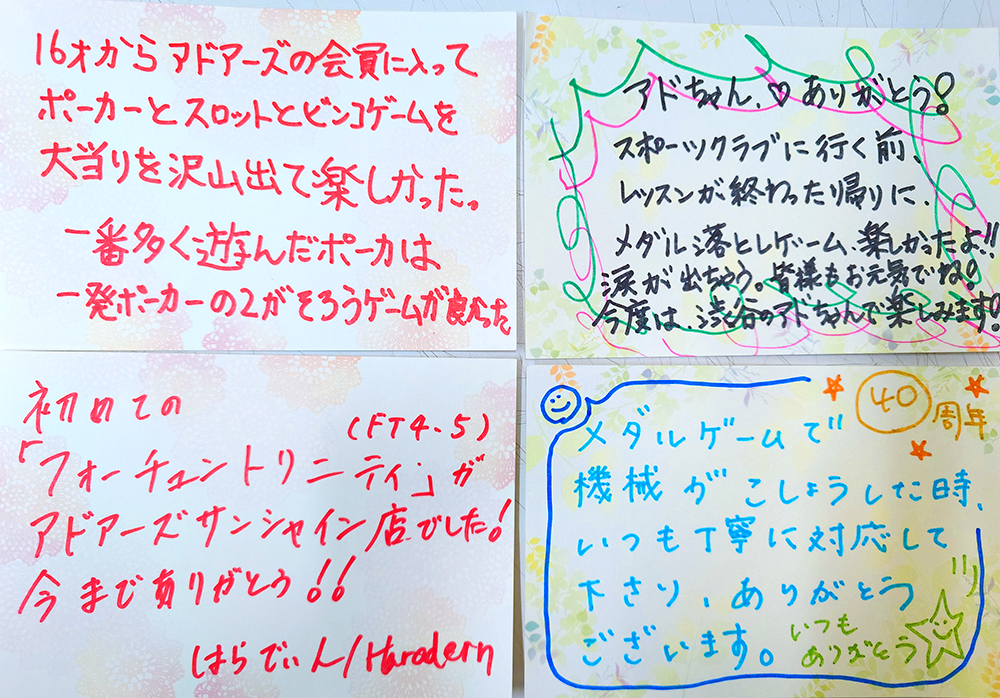 16才からアドアーズの会員に入って
ポーカーとスロットとビンゴゲームを
大当りを沢山出て楽しかった。
一番多く遊んだポーカは
一発ポーカーの2がそろうゲームが良かった
アドちゃん、♡ありがとう!
スポーツクラブに行く前、
レッスンが終わったり帰りに、
メダル落としゲーム、楽しかったよ!!
涙が出ちゃう。皆様もお元気でね!
今度は、渋谷のアドちゃんで楽しみます!
初めての
(FT4.5)
「フォーチュントリニティ」が
アドアーズサンシャイン店でした!
今までありがとう!!
はらでぃん/Haradern
40周年
メダルゲームで
機械がこしょうした時、
いつも丁寧に対応して
下さり、ありがとう
ございます。
いつも
ありがとう